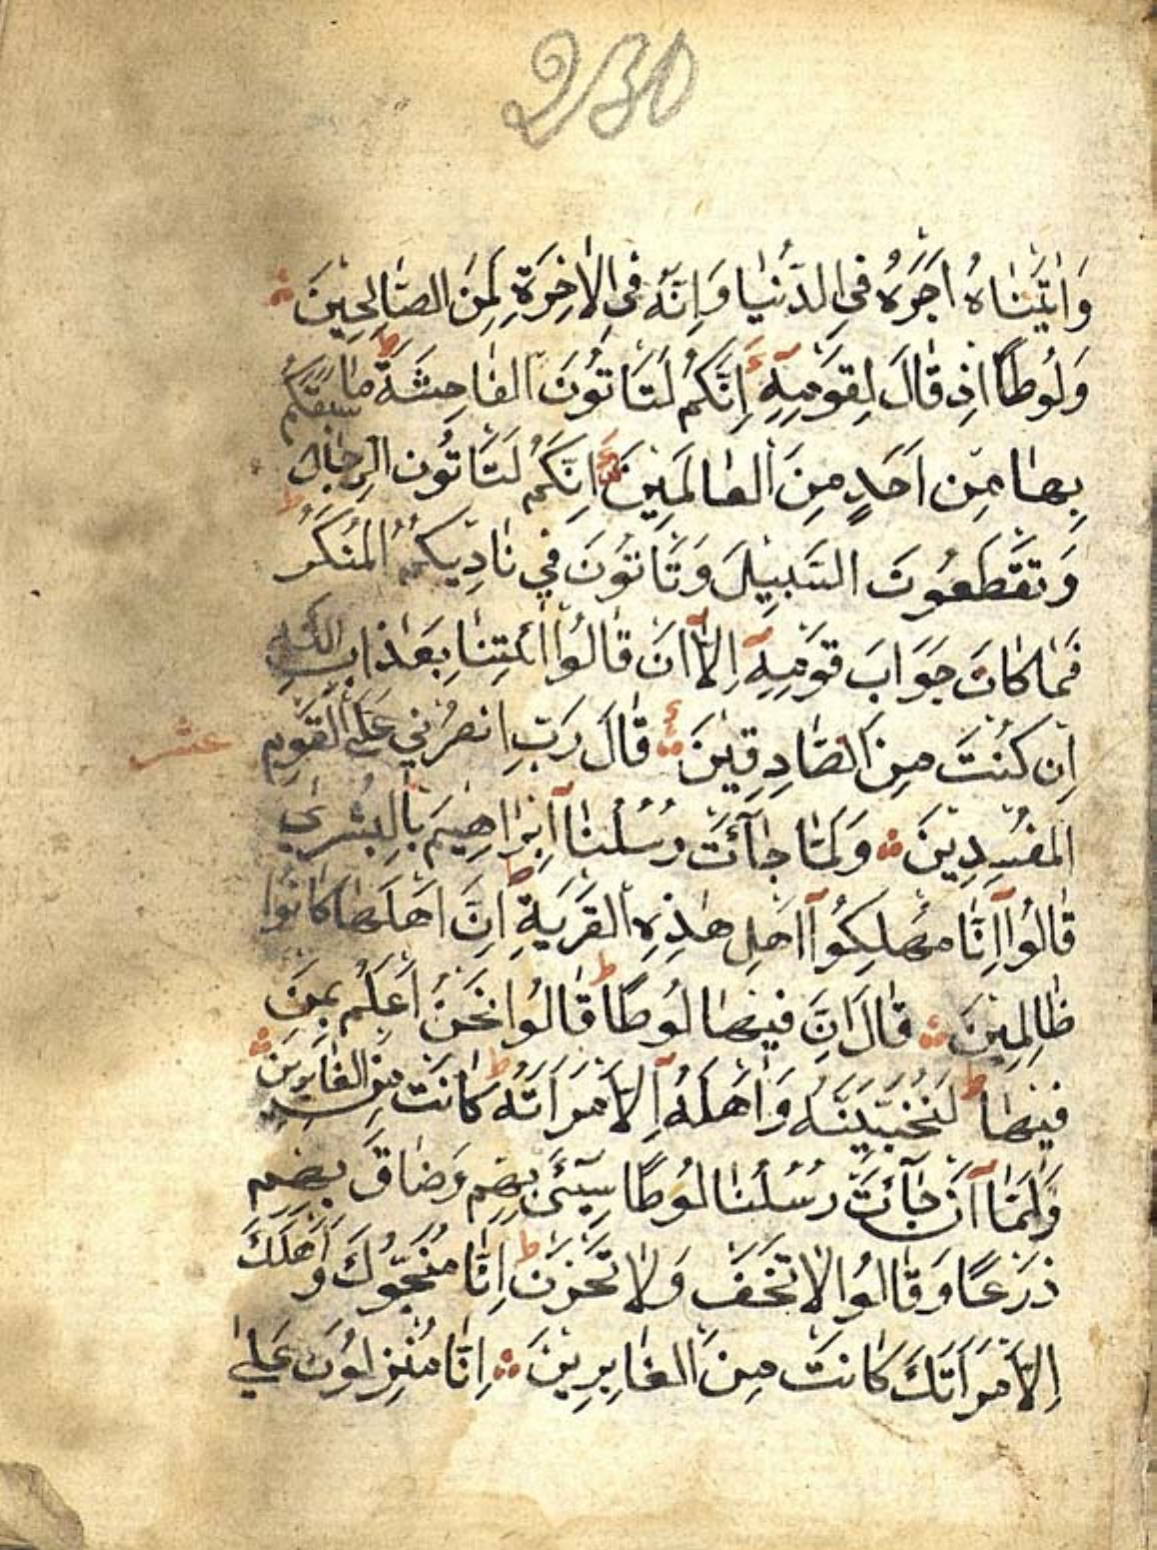 230
وَاٰتَيْنَاهُ اَجْرَهُ فِي الدُّنْيَا وَاِنَّهُ فِي الْاٰخِرَةِ لَمِنَ الصَّالِحِينَ
وَلُوطًا اِذْ قَالَ لِقَوْمِهِٓ اِنَّكُمْ لَتَاْتُونَ الْفَاحِشَةَ ط مَا سَبَقَكُمْ
بِهَا مِنْ اَحَدٍ مِنَ الْعَالَمِينَ اَئِنَّكُمْ لَتَاْتُونَ الرِّجَالَ
وَتَقْطَعُونَ السَّبِيلَ وَتَاْتُونَ فِي نَادِيكُمُ الْمُنْكَرَ ط
فَمَا كَانَ جَوَابَ قَوْمِهِٓ اِلَّٓا اَنْ قَالُوا ائْتِنَا بِعَذَابِ اللّٰهِ
اِنْ كُنْتَ مِنَ الصَّادِقِينَ قَالَ رَبِّ انْصُرْنِي عَلَى الْقَوْمِ
عشر
الْمُفْسِدِينَ وَلَمَّا جَآئَتْ رُسُلُنَٓا اِبْرَاهِيمَ بِالْبُشْرٰى
قَالُوٓا اِنَّا مُهْلِكُوٓا اَهْلِ هٰذِهِ الْقَرْيَةِ ط اِنَّ اَهْلَهَا كَانُوا
ظَالِمِينَ قَالَ اِنَّ فِيهَا لُوطًا ط قَالُوا نَحْنُ اَعْلَمُ بِمَنْ
فِيهَا ط لَنُنَجِّيَنَّهُ وَاَهْلَهُٓ اِلَّا امْرَاَتَهُ ط كَانَتْ مِنَ الْغَابِرِينَ
وَلَمَّٓا اَنْ جَآئَتْ رُسُلُنَا لُوطًا سِٓيئَ بِهِمْ وَضَاقَ بِهِمْ
ذَرْعًا وَقَالُوا لَا تَخَفْ وَلَا تَحْزَنْ ط اِنَّا مُنَجُّوكَ وَاَهْلَكَ
اِلَّا امْرَاَتَكَ كَانَتْ مِنَ الْغَابِرِينَ اِنَّا مُنْزِلُونَ عَلٰى